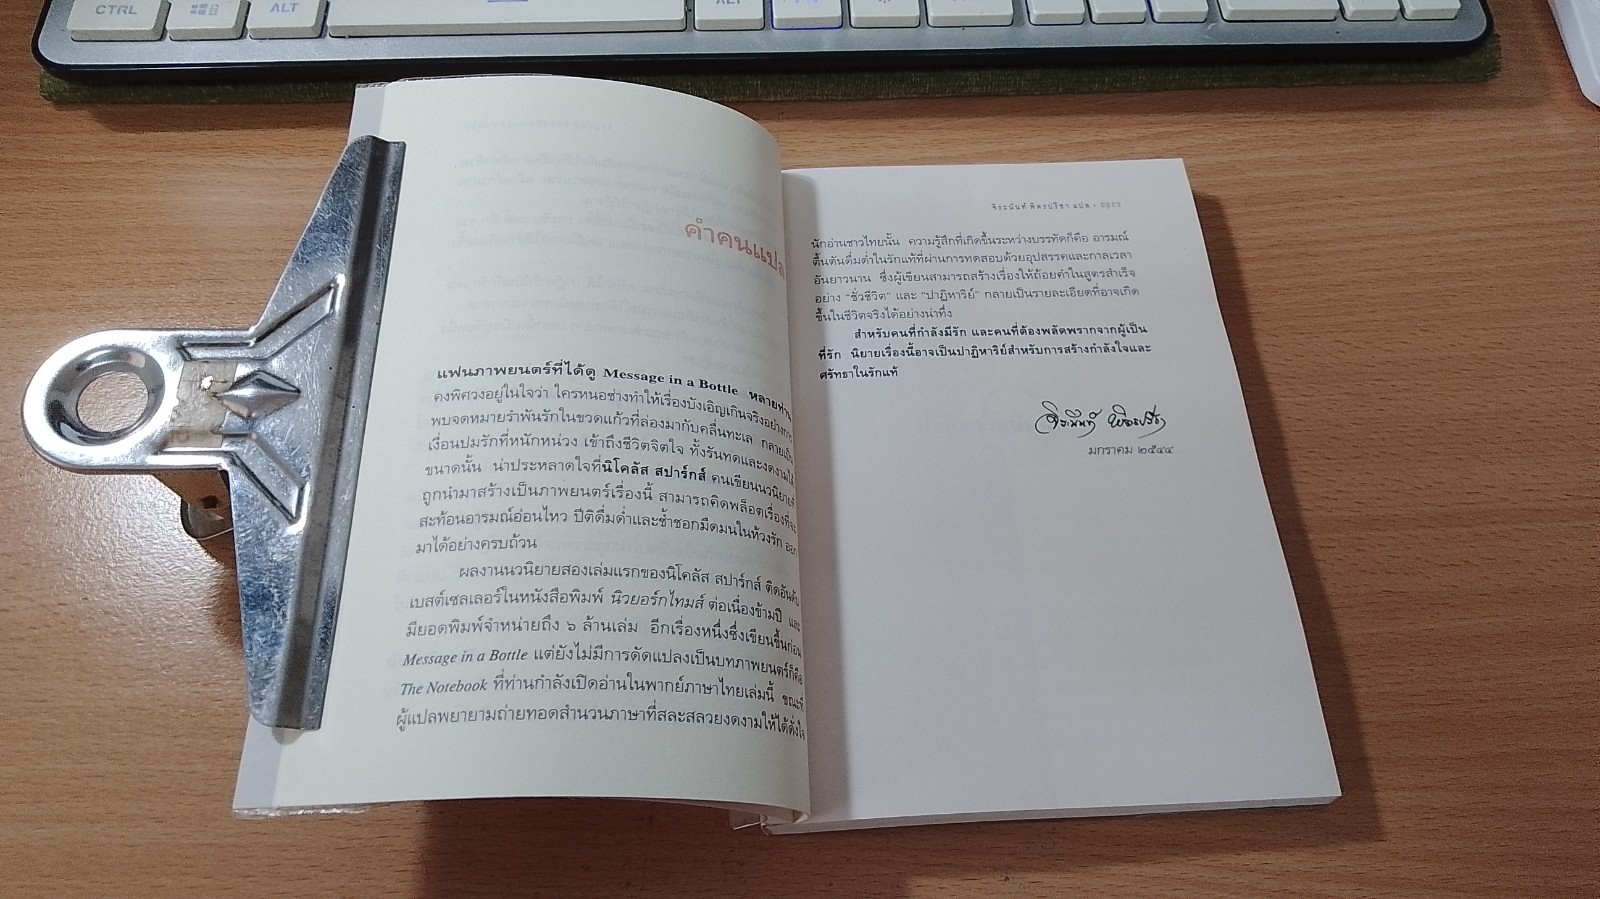 CTRL
ALT
ALT
คำคนแปล
แฟนภาพยนตร์ที่ได้ดู Message in a Bottle หลายท่าน
คงพิศวงอยู่ในใจว่า ใครหนอช่างทำให้เรื่องบังเอิญเกินจริงอย่างการ
พบจดหมายรำพันรักในขวดแก้วที่ล่องมากับคลื่นทะเล กลายเป็น
เงื่อนปมรักที่หนักหน่วง เข้าถึงชีวิตจิตใจ ทั้งรันทดและงดงามได้
ขนาดนั้น น่าประหลาดใจที่นิโคลัส สปาร์กส์ คนเขียนนวนิยายที่
ถูกนำมาสร้างเป็นภาพยนตร์เรื่องนี้ สามารถคิดพล็อตเรื่องที่จะ
สะท้อนอารมณ์อ่อนไหว ปีติดื่มด่ำและช้ำชอกมืดมนในห้วงรัก ออก
มาได้อย่างครบถ้วน
ผลงานนวนิยายสองเล่มแรกของนิโคลัส สปาร์กส์ ติดอันดับ
เบสต์เซลเลอร์ในหนังสือพิมพ์ นิวยอร์กไทมส์ ต่อเนื่องข้ามปี และ
มียอดพิมพ์จำหน่ายถึง ๖ ล้านเล่ม อีกเรื่องหนึ่งซึ่งเขียนขึ้นก่อน
Message in a Bottle แต่ยังไม่มีการดัดแปลงเป็นบทภาพยนตร์ก็คือ
The Notebook ที่ท่านกำลังเปิดอ่านในพากย์ภาษาไทยเล่มนี้ ขณะที่
ผู้แปลพยายามถ่ายทอดสำนวนภาษาที่สละสลวยงดงามให้ได้ดั่งใจ
จิระนันท์ พิตรปรีชา แปล •
นักอ่านชาวไทยนั้น ความรู้สึกที่เกิดขึ้นระหว่างบรรทัดก็คือ อารมณ์
ตื้นตันดื่มด่ำในรักแท้ที่ผ่านการทดสอบด้วยอุปสรรคและกาลเวลา
อันยาวนาน ซึ่งผู้เขียนสามารถสร้างเรื่องให้ถ้อยคำในสูตรสำเร็จ
อย่าง “ชั่วชีวิต” และ “ปาฏิหาริย์” กลายเป็นรายละเอียดที่อาจเกิด
ขึ้นในชีวิตจริงได้อย่างน่าทึ่ง
สำหรับคนที่กำลังมีรัก และคนที่ต้องพลัดพรากจากผู้เป็น
ที่รัก นิยายเรื่องนี้อาจเป็นปาฏิหาริย์สำหรับการสร้างกำลังใจและ
ศรัทธาในรักแท้
จิระนันท์ พิตรปรีชา
มกราคม ๒๕๔๔